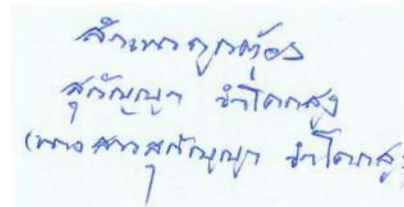 สำเนาถูกต้อง
สุกัญญา ขำโคกสูง
(นางสาวสุกัญญา ขำโคกสูง